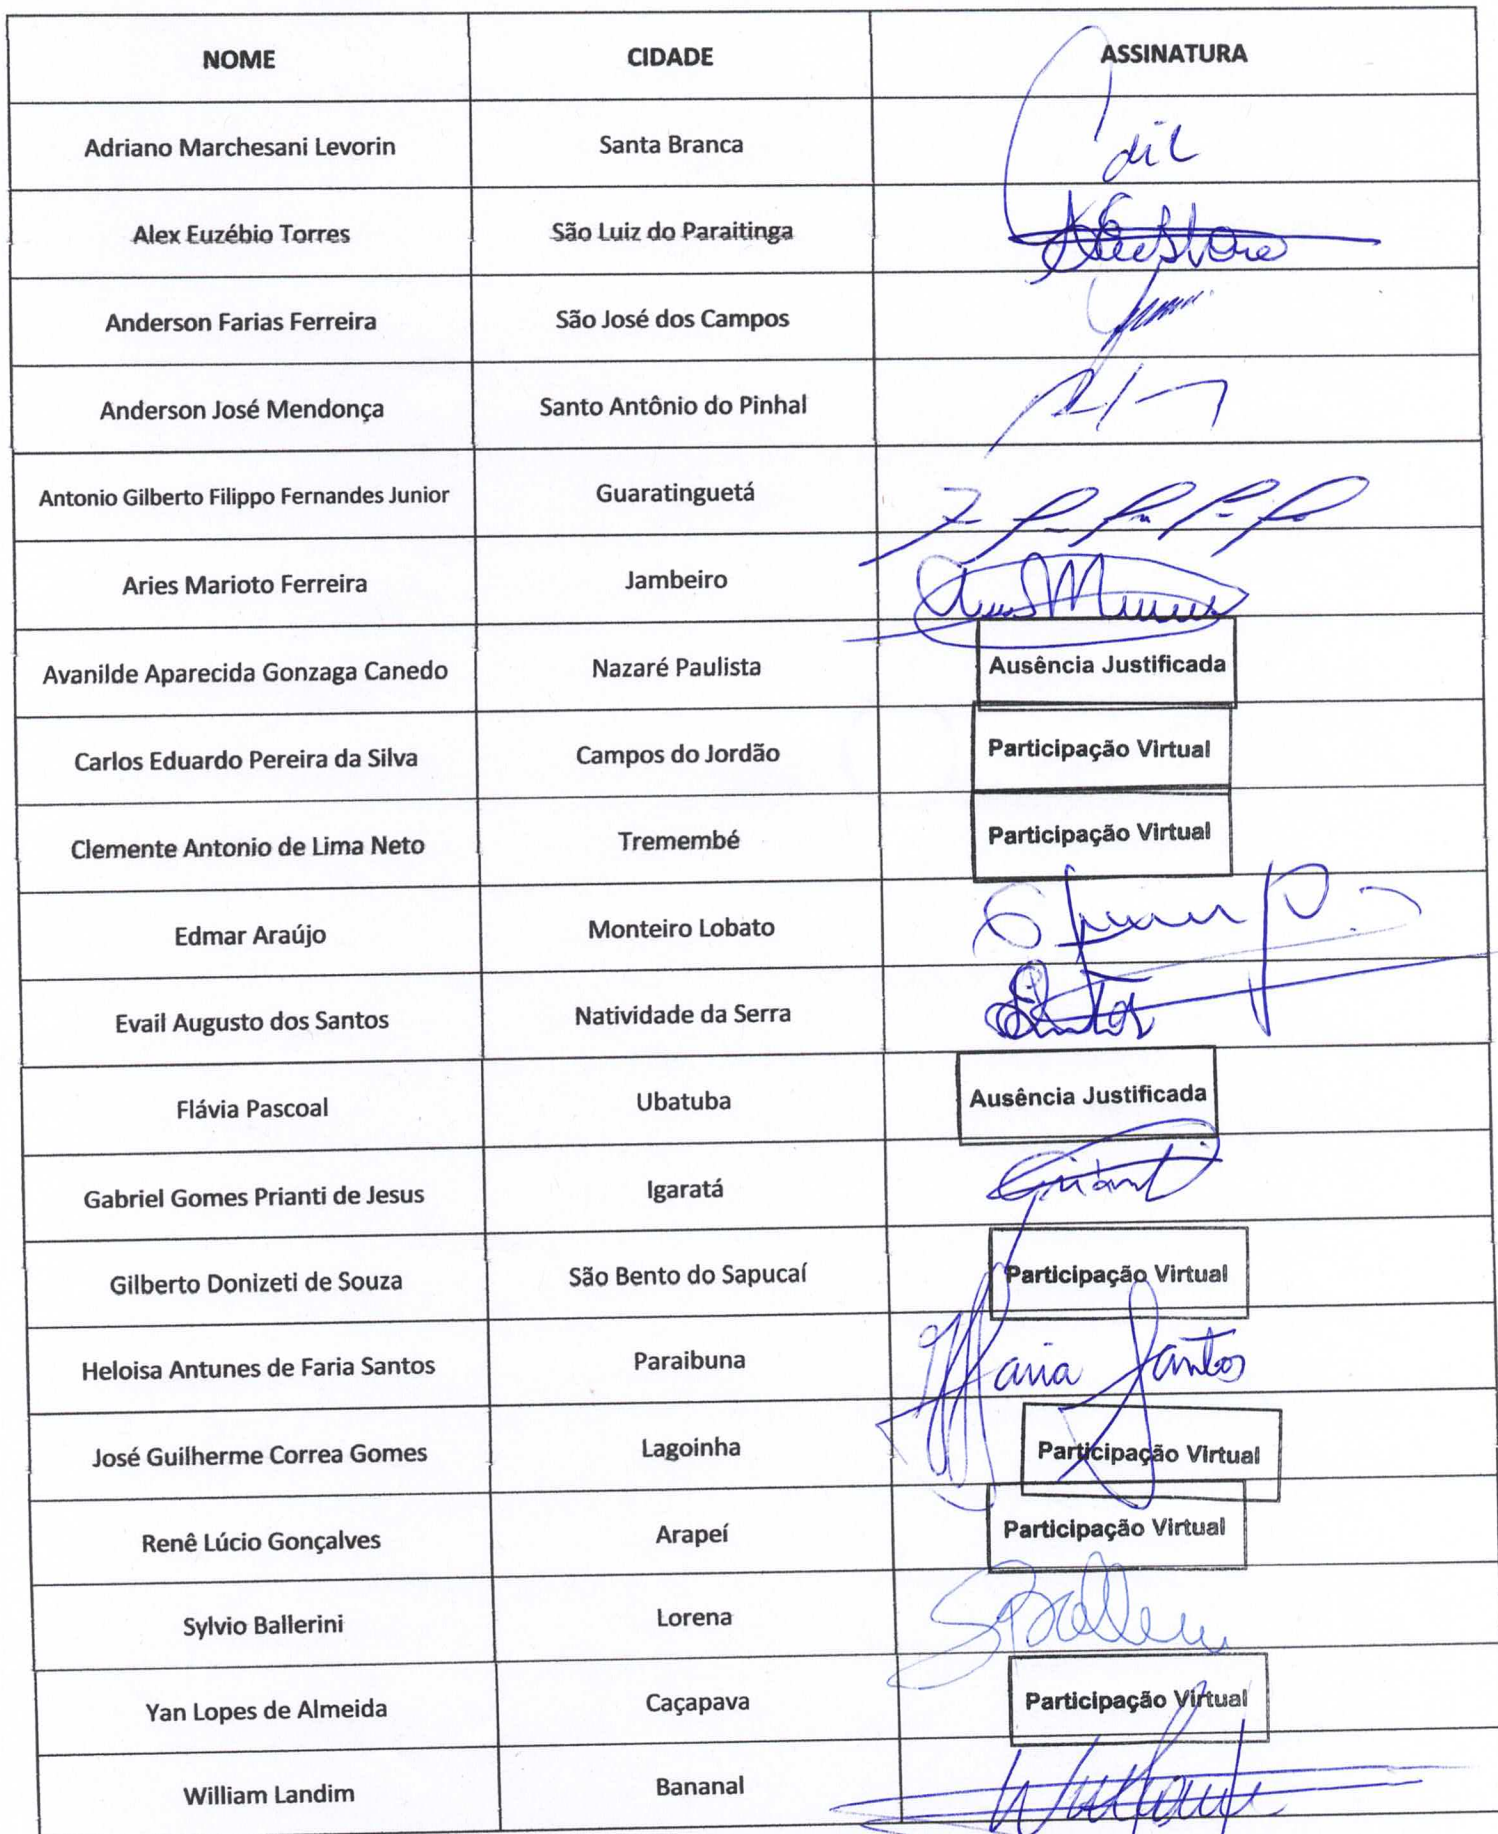 NOME CIDADE ASSINATURA
Adriano Marchesani Levorin Santa Branca
Alex Euzébio Torres São Luiz do Paraitinga
Anderson Farias Ferreira São José dos Campos
Anderson José Mendonça Santo Antônio do Pinhal
Antonio Gilberto Filippo Fernandes Junior Guaratinguetá
Aries Marioto Ferreira Jambeiro
Avanilde Aparecida Gonzaga Canedo Nazaré Paulista Ausência Justificada
Carlos Eduardo Pereira da Silva Campos do Jordão Participação Virtual
Clemente Antonio de Lima Neto Tremembé Participação Virtual
Edmar Araújo Monteiro Lobato
Evail Augusto dos Santos Natividade da Serra
Flávia Pascoal Ubatuba Ausência Justificada
Gabriel Gomes Prianti de Jesus Igaratá
Gilberto Donizeti de Souza São Bento do Sapucaí Participação Virtual
Heloisa Antunes de Faria Santos Paraibuna HFaria Santos
José Guilherme Correa Gomes Lagoinha Participação Virtual
Renê Lúcio Gonçalves Arapeí Participação Virtual
Sylvio Ballerini Lorena
Yan Lopes de Almeida Caçapava Participação Virtual
William Landim Bananal